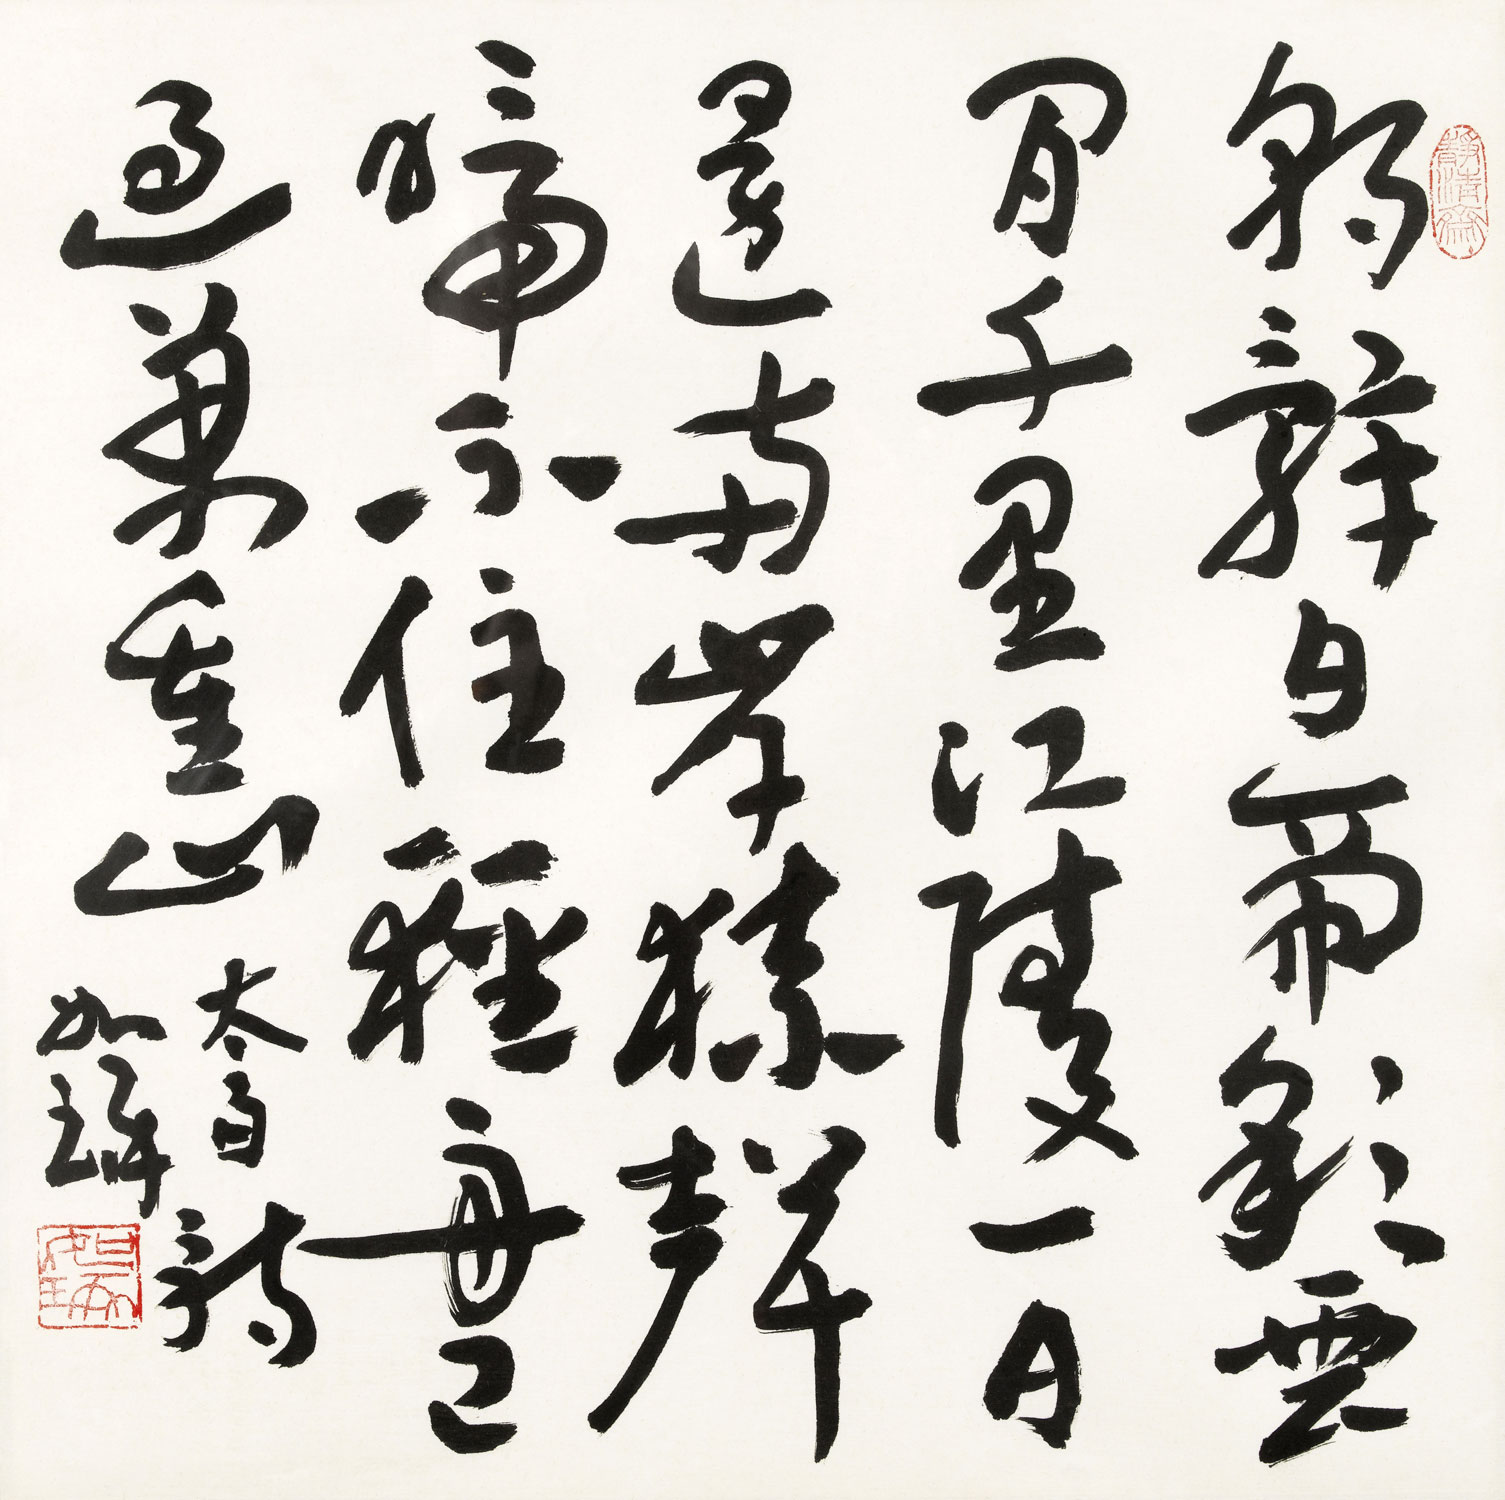 靜清齋
朝辭白帝彩雲
間千里江陵一日
還兩岸猿聲
啼不住輕舟已
過萬重山
太白詩
如